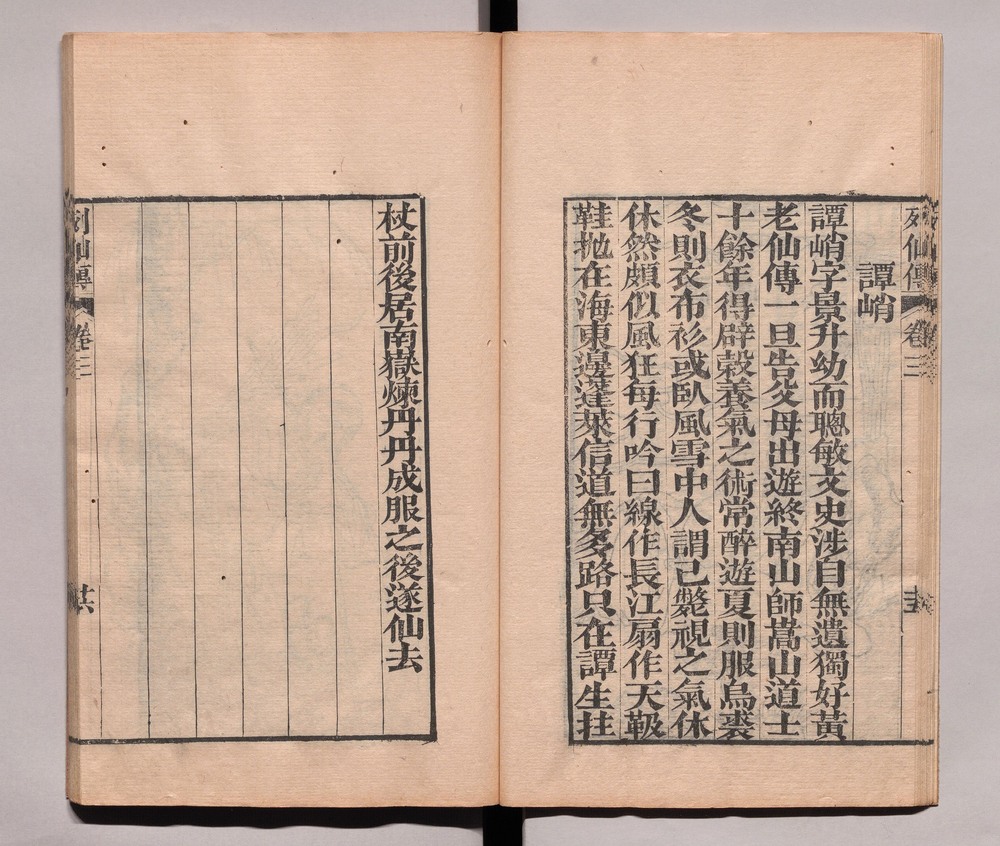 列仙傳 卷三
譚峭
譚峭字景升幼而聰敏文史涉自無遺獨好黃
老仙傳一旦告父母出遊終南山師嵩山道士
十餘年得辟穀養氣之術常醉遊夏則服烏裘
冬則衣布衫或臥風雪中人謂已斃視之氣休
休然頗似風狂每行吟曰線作長江扇作天靸
鞋抛在海東邊蓬萊信道無多路只在譚生拄
杖前後居南嶽煉丹丹成服之後遂仙去
列仙傳 卷三